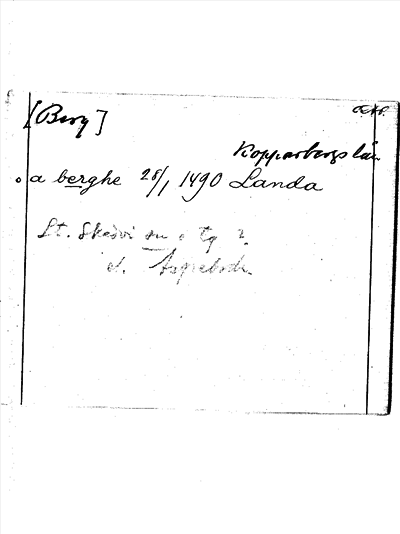 [Berg]
Kopparbergs län
a berghe 28/1 1490 Landa
St. Skedvi sn o tg ?
el. Aspeboda